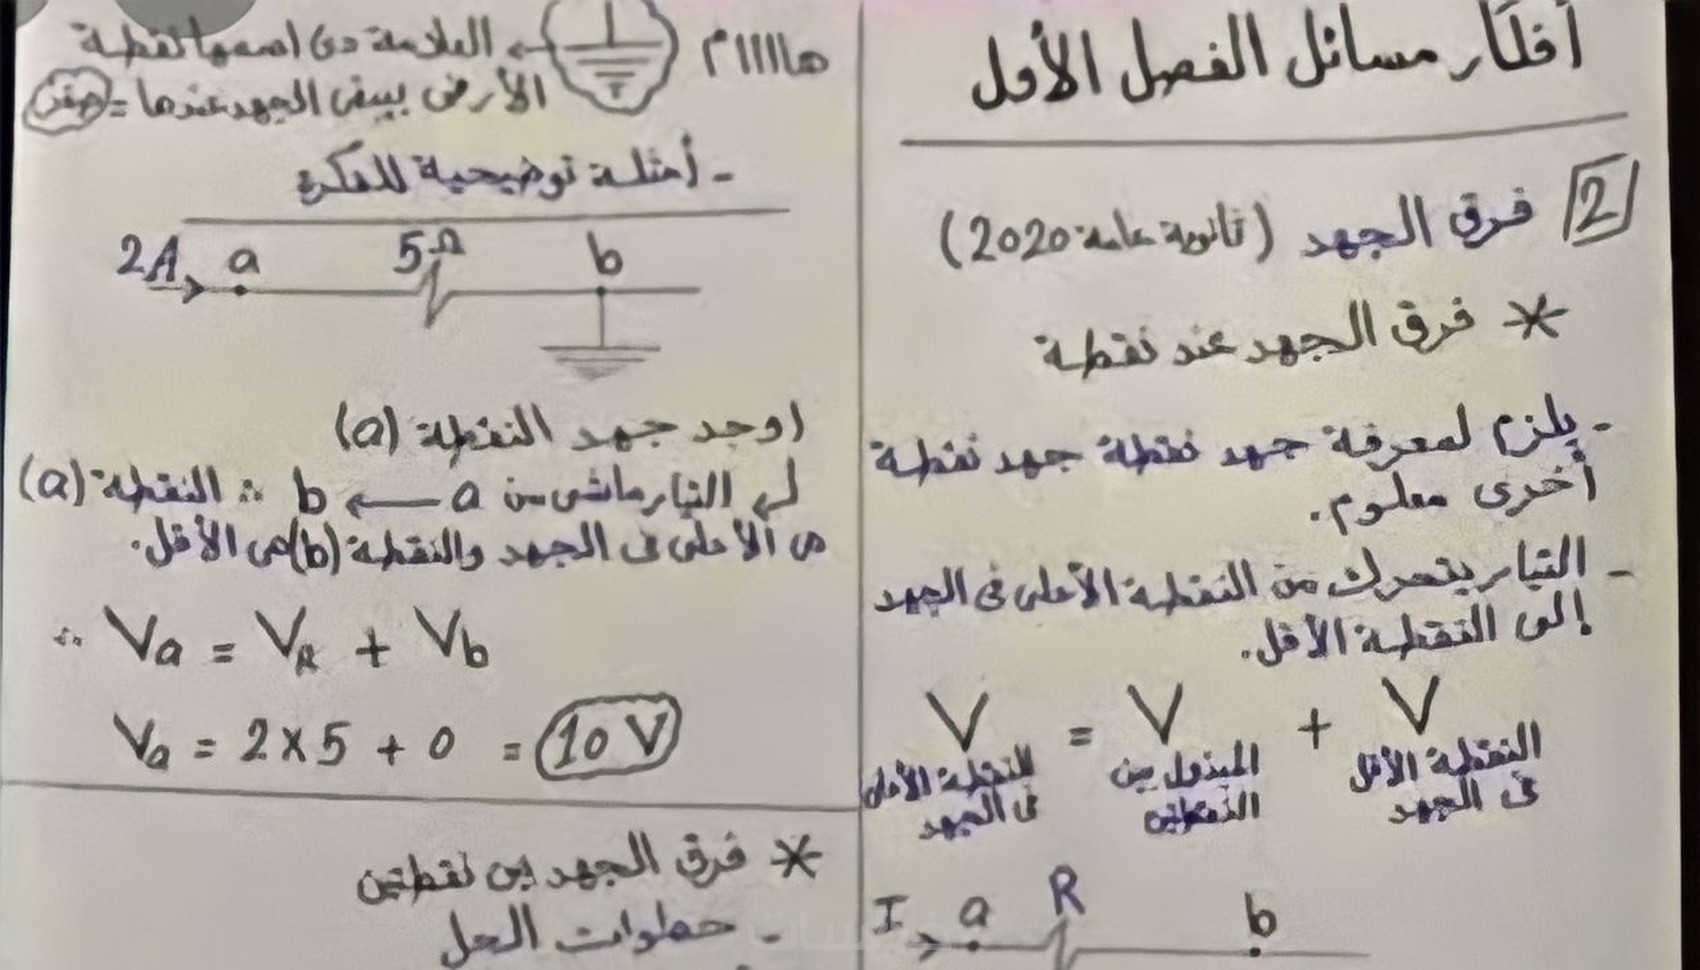 أفكار مسائل الفصل الأول
2 فرق الجهد (ثانوية عامة 2020)
* فرق الجهد عند نقطة
- يلزم لمعرفة جهد نقطة جهد نقطة
أخرى معلوم.
- التيار يتحرك من النقطة الأعلى فى الجهد
إلى النقطة الأقل.
V = V + V
النقطة الأعلى المبذول بين النقطة الأقل
فى الجهد النقطتين فى الجهد
I a R b
هااااام
← العلامة دى اسمها نقطة
الأرض بيبقى الجهد عندها = صفر
- أمثلة توضيحية للفكرة
2A a 5Ω b
اوجد جهد النقطة (a)
التيار ماشى من a ← b ∴ النقطة (a)
هى الأعلى فى الجهد والنقطة (b) هى الأقل.
∴ Va = VR + Vb
Va = 2 × 5 + 0 = 10 V
* فرق الجهد بين نقطتين
- خطوات الحل